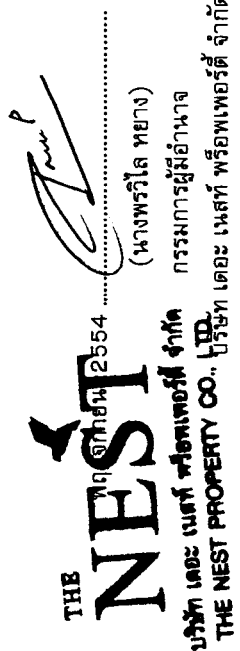 THE
NEST
บริษัท เดอะ เนสท์ พร็อพเพอร์ตี้ จำกัด
THE NEST PROPERTY CO., LTD.
พฤศจิกายน 2554
(นางพรวิไล หยาง)
กรรมการผู้มีอำนาจ
บริษัท เดอะ เนสท์ พร็อพเพอร์ตี้ จำกัด